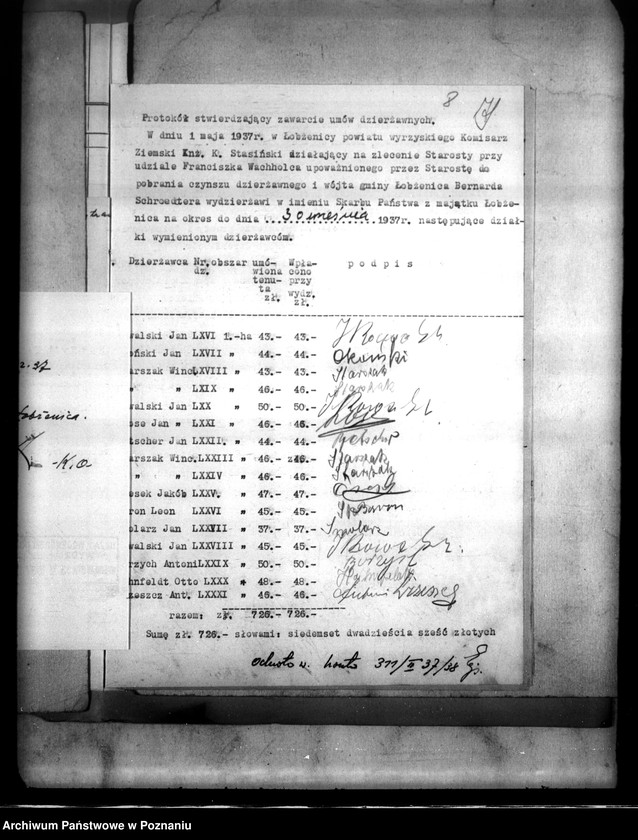 8
Protokół stwierdzający zawarcie umów dzierżawnych.
W dniu 1 maja 1937r. w Łobżenicy powiatu wyrzyskiego Komisarz
Ziemski Inż. K. Stasiński działający na zlecenie Starosty przy
udziale Franciszka Wachholca upoważnionego przez Starostę do
pobrania czynszu dzierżawnego i wójta gminy Łobżenica Bernarda
Schroedtera wydzierżawi w imieniu Skarbu Państwa z majątku Łobże-
nica na okres do dnia 30 września 1937r. następujące dział-
ki wymienionym dzierżawcom.
Dzierżawca Nr. obszar umó- Wpła- podpis
dz. wiona cono
tenu- przy
ta wydz.
zł. zł.
walski Jan LXVI 1.-ha 43.- 43.-
oński Jan LXVII " 44.- 44.- Okoński
arszak Winc. LXVIII " 43.- 43.- Starszak
" " LXIX " 46.- 46.- Starszak
walski Jan LXX " 50.- 50.-
ose Jan " LXXI " 46.- 46.-
tscher Jan LXXII " 44.- 44.-
arszak Winc. LXXIII " 46.- 46.- Starszak
" " LXXIV " 46.- 46.- Starszak
osek Jakób LXXV. " 47.- 47.-
ron Leon LXXVI " 45.- 45.-
olarz Jan LXXVII " 37.- 37.- Smolarz
walski Jan LXXVIII " 45.- 45.-
rzych Antoni LXXIX " 50.- 50.-
hnfeldt Otto LXXX " 48.- 48.-
zeszcz Ant. LXXXI " 46.- 46.- Antoni Drzeszcz
razem: zł. 726.- 726.-
Sumę zł. 726.- słowami: siedemset dwadzieścia sześć złotych
konto 311/II 37/38
Łobżenica.
-K.O
Archiwum Państwowe w Poznaniu